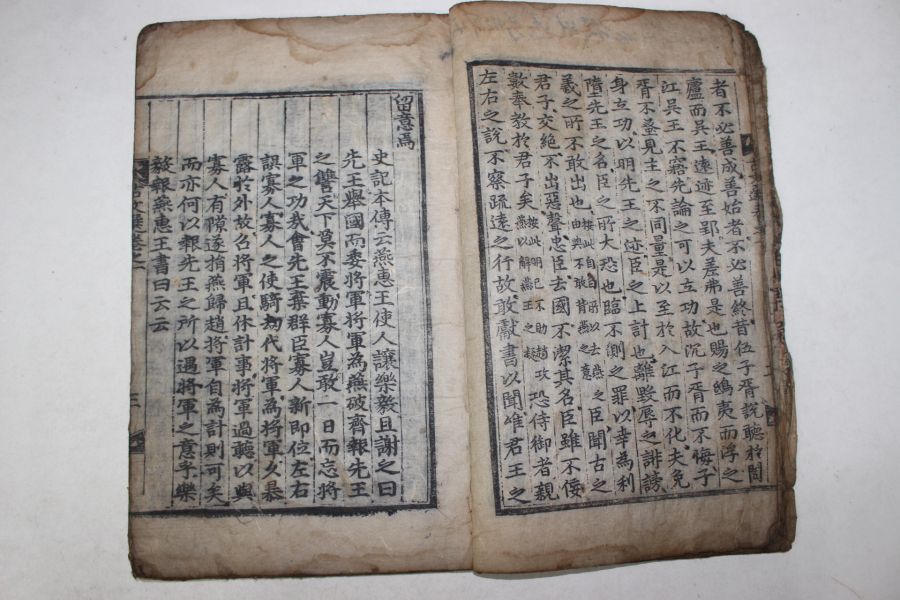 者不必善成善始者不必善終昔伍子胥說聽於闔
廬而吳王遠迹至郢夫差弗是也賜之鴟夷而浮之
江吳王不寤先論之可以立功故沉子胥而不悔子
胥不蚤見主之不同量是以至於入江而不化夫免
身立功以明先王之迹臣之上計也離毀辱之誹謗
隳先王之名臣之所大恐也臨不測之罪以幸為利
義之所不敢出也 按此自所以去燕之 由與不敢背燕之意 臣聞古之
君子交絶不出惡聲忠臣去國不潔其名臣雖不佞
數奉教於君子矣 按此明已不助趙攻 燕以解燕王之疑 恐侍御者親
左右之說不察疏遠之行故敢獻書以聞唯君王之
留意焉
史記本傳云燕惠王使人讓樂毅且謝之曰
先王舉國而委將軍將軍為燕破齊報先王
之讐天下莫不震動寡人豈敢一日而忘將
軍之功哉會先王棄群臣寡人新即位左右
誤寡人寡人之使騎劫代將軍為將軍久暴
露於外故召將軍且休計事將軍過聽以與
寡人有隙遂捐燕歸趙將軍自為計則可矣
而亦何以報先王之所以遇將軍之意乎樂
毅報燕惠王書曰云云
三